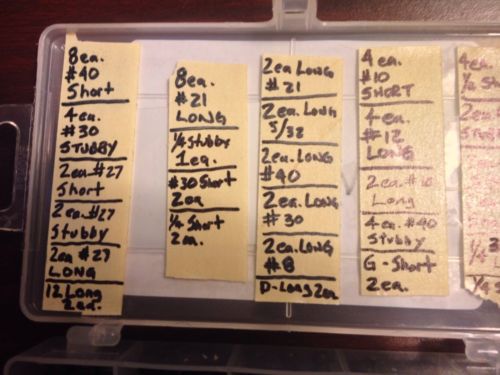 8ea.
#40
Short
4ea.
#30
STUBBY
2ea #27
Short
2ea.#27
Stubby
2ea #27
LONG
12 Long
2ea.
8ea.
#21
LONG
1/4 Stubby
1ea.
#30 Short
2ea
1/4 Short
2ea.
2ea LONG
#21
2ea. Long
5/32
2ea. LONG
#40
2ea. LONG
#30
2ea. LONG
#8
D-Long 2ea
4ea.
#10
SHORT
4ea.
#12
LONG
2ea #10
Long
4ea. #40
Stubby
G-Short
2ea.
4ea
2ea
1/4
1/4 S